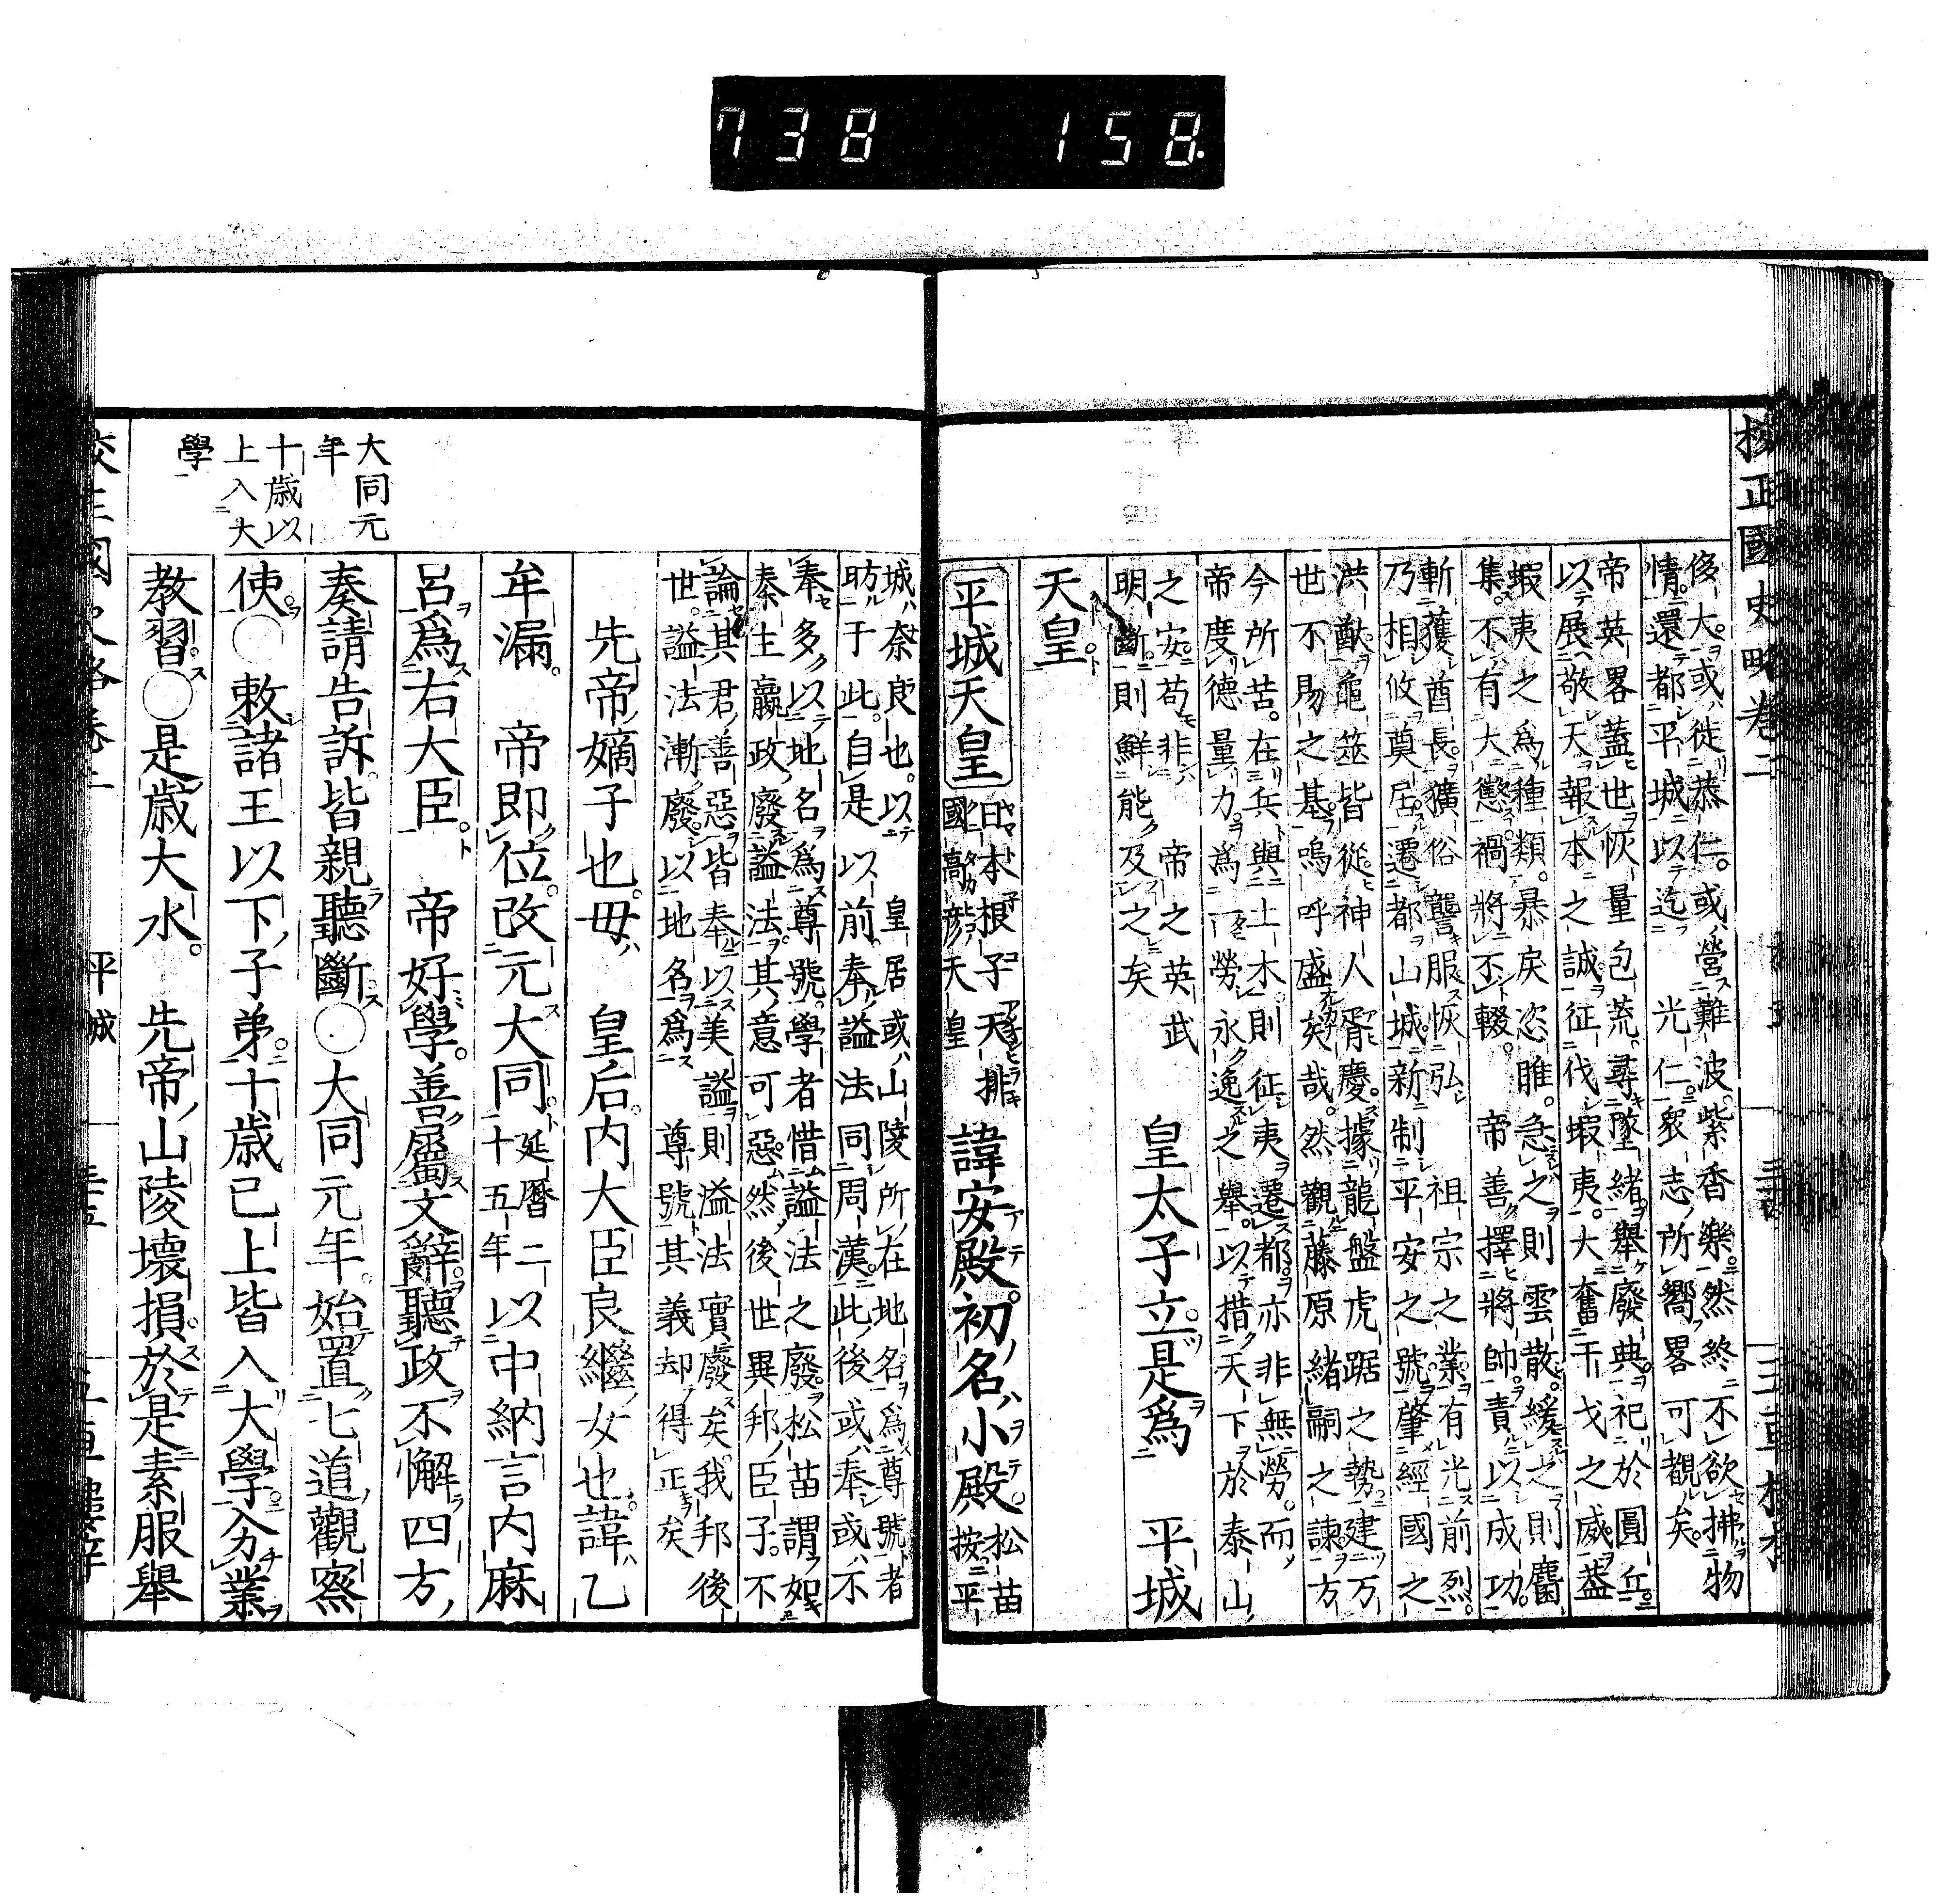 738 158
校正國史略卷二
侈大。或徙恭仁。或營難波。紫香樂。然終不欲拂物
情。還都平城。以迄 光仁。衆志所嚮畧可觀矣。
帝英畧蓋世。恢量包荒。尋墜緒。舉廢典。祀於圓丘
以展敬天報本之誠。征伐蝦夷。大奮干戈之威。蓋
蝦夷之爲種類。暴戾恣睢。急之則雲散。緩之則麕
集。不有大懲禍將不輟。 帝善擇將帥。責以成功。
斬獲酋長。獷俗讋服。恢弘 祖宗之業。有光前烈。
乃相攸奠居。遷都山城。新制平安之號。肇經國之
洪猷。龜筮皆從。神人胥慶。據龍盤虎踞之勢。建万
世不易之基。嗚呼盛矣哉。然觀藤原緒嗣之諫。方
今所苦。在兵與土木。則征夷遷都。亦非無勞。而
帝度德量力。爲一勞永逸之舉。以措天下於泰山
之安。苟非 帝之英武
明斷。則鮮能及之矣
皇太子立。是爲 平城
天皇。
平城天皇 日本根子天排
國高彦天皇 諱安殿。初名小殿。松苗
按平
城奈良也。以 皇居或山陵所在地名爲尊號者
昉于此。自是以前奉謚法同周漢。此後或奉或不
奉。多以地名爲尊號。學者惜謚法之廢。松苗謂。如
秦主嬴政廢謚法。其意可惡。然後世異邦臣子。不
論其君善惡。皆奉以美謚。則謚法實廢矣。我邦後
世。謚法漸廢。以地名爲 尊號。其義却得正矣
先帝嫡子也。母 皇后。内大臣良繼女也。諱乙
牟漏。 帝即位。改元大同。延曆二
十五年 以中納言内麻
呂爲右大臣。 帝好學。善屬文辭。聽政不懈。四方
奏請告訴。皆親聽斷○大同元年。始置七道觀察
使。○敕諸王以下子弟。十歲已上皆入大學。分業
教習○是歲大水。 先帝山陵壞損。於是素服舉
大同元
年
十歲以
上入大
學
平城